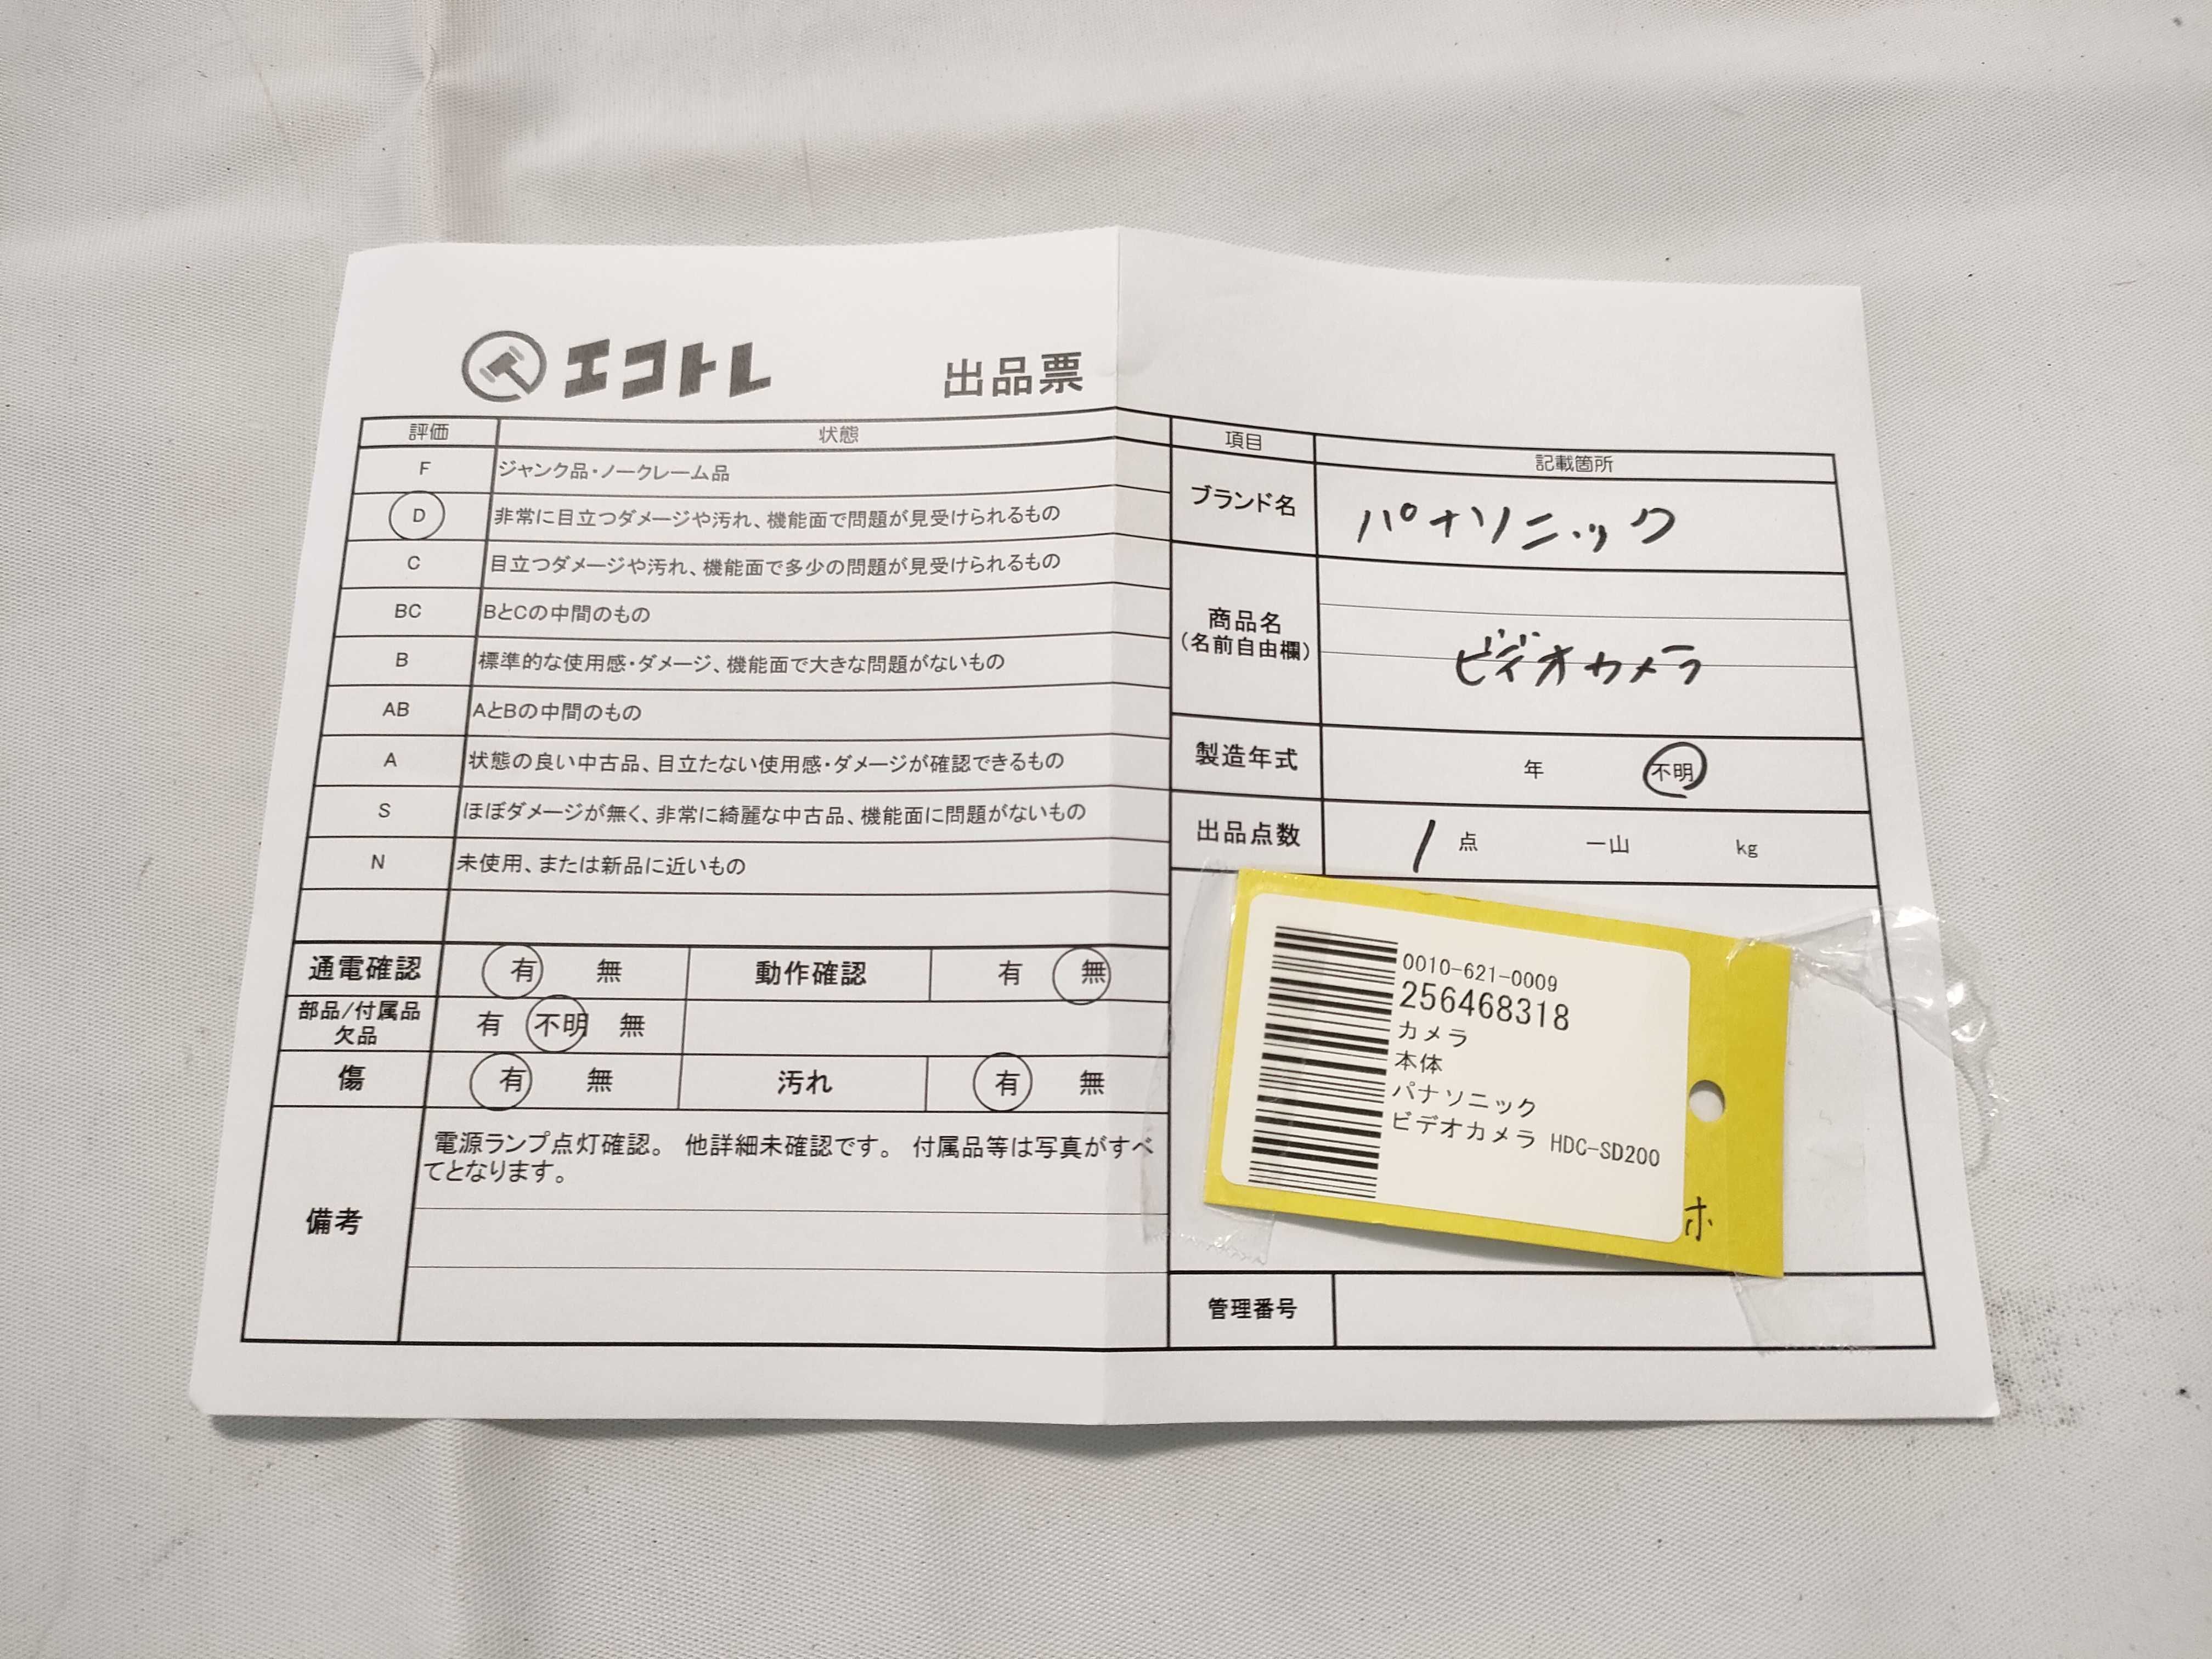 エコトレ 出品票
評価 状態
F ジャンク品・ノークレーム品
D 非常に目立つダメージや汚れ、機能面で問題が見受けられるもの
C 目立つダメージや汚れ、機能面で多少の問題が見受けられるもの
BC BとCの中間のもの
B 標準的な使用感・ダメージ、機能面で大きな問題がないもの
AB AとBの中間のもの
A 状態の良い中古品、目立たない使用感・ダメージが確認できるもの
S ほぼダメージが無く、非常に綺麗な中古品、機能面に問題がないもの
N 未使用、または新品に近いもの
通電確認 有 無 動作確認 有 無
部品/付属品
欠品 有 不明 無
傷 有 無 汚れ 有 無
備考
電源ランプ点灯確認。 他詳細未確認です。 付属品等は写真がすべ
てとなります。
項目 記載箇所
ブランド名 パナソニック
商品名
(名前自由欄)
ビデオカメラ
製造年式 年 不明
出品点数 1 点 一山 kg
0010-621-0009
256468318
カメラ
本体
パナソニック
ビデオカメラ HDC-SD200
ホ
管理番号